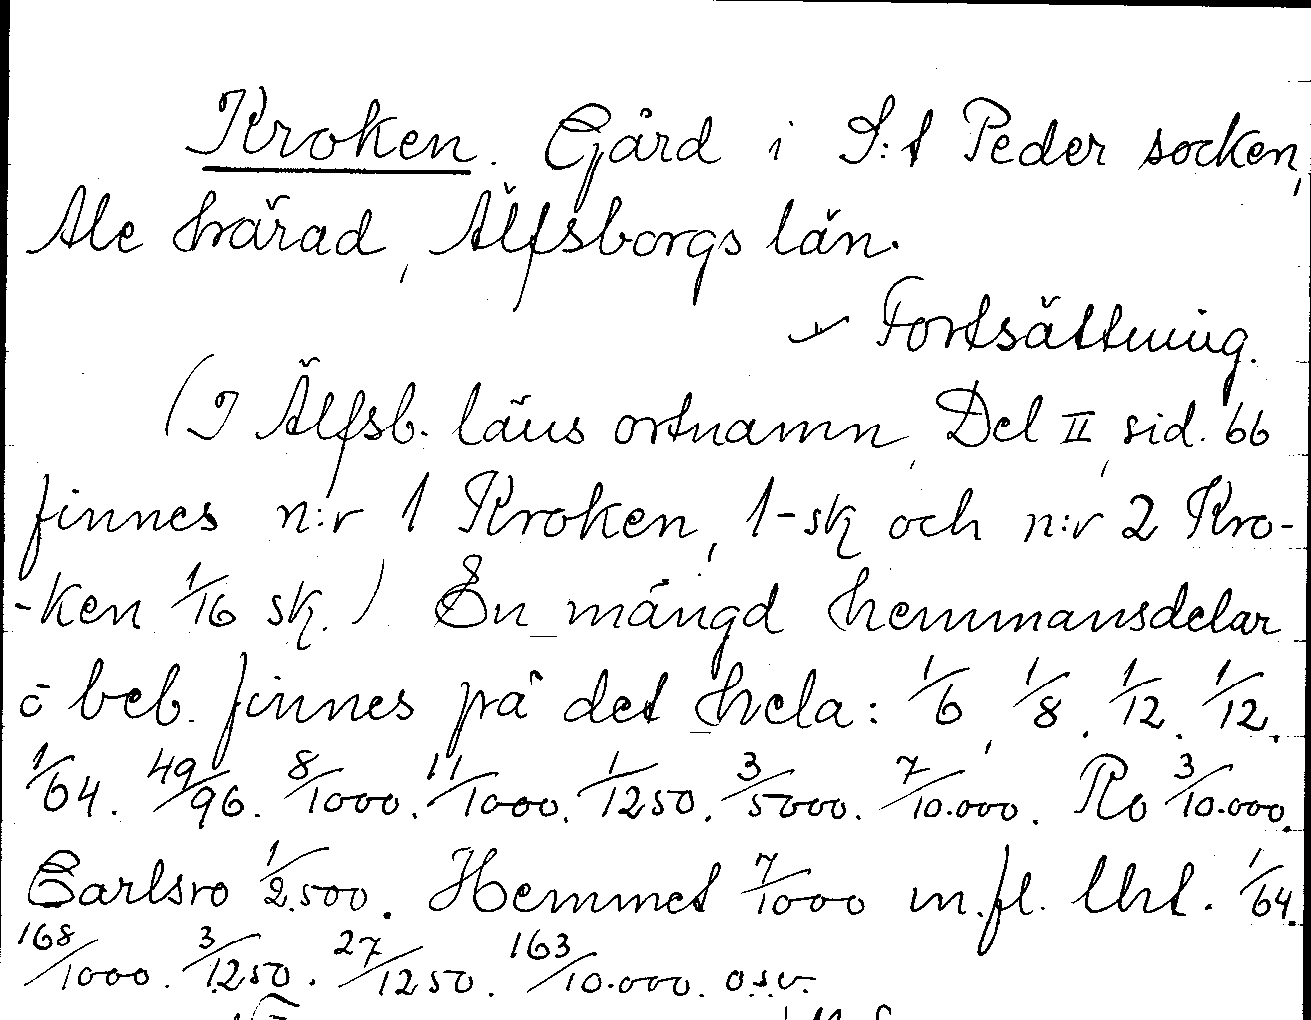 Kroken. Gård i S:t Peder socken,
Ale härad, Älfsborgs län.
Fortsättning.
(I Älfsb. läns ortnamn, Del II, sid. 66
finnes n:r 1 Kroken, 1-sk och n:r 2 Kro-
-ken 1/16 sk.) En mängd hemmansdelar
o beb. finnes på det hela: 1/6, 1/8. 1/12. 1/12.
1/64. 49/96. 8/1000. 11/1000. 1/1250. 3/5000. 7/10.000. Ro 3/10.000.
Carlsro 1/2.500. Hemmet 7/1000 m.fl. Uht. 1/64.
168/1000. 3/1250. 27/1250. 163/10.000. o.s.v.